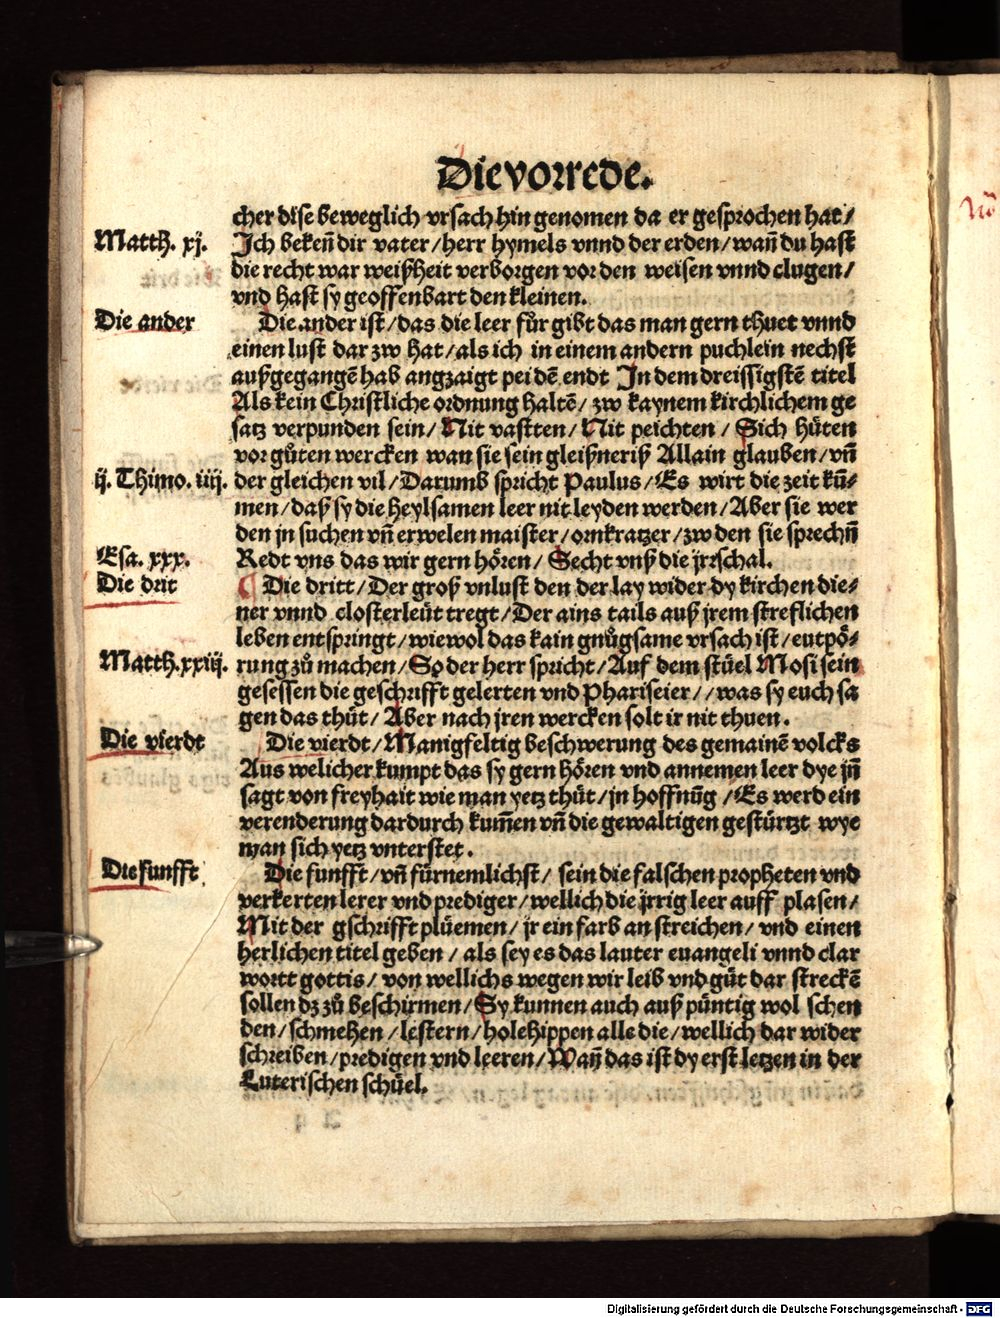 Die vorrede.
cher dise beweglich vrsach hin genomen da er gesprochen hat/
Matth. xj.
Ich bekeñ dir vater/herr hymels vnnd der erden/wañ du hast
die recht war weißheit verborgen vor den weisen vnnd clugen/
vnd hast sy geoffenbart den kleinen.
Die ander
Die ander ist/das die leer fůr gibt das man gern thuet vnnd
einen lust dar zw hat/als ich in einem andern puchlein nechst
außgegangē hab angzaigt pei dē endt In dem dreissigstē titel
Als kein Christliche ordnung haltē/zw kaynem kirchlichem ge
satz verpunden sein/Nit vastten/Nit peichten/Sich hüten
vor gůten wercken wan sie sein gleißneriß Allain glauben/vñ
ij. Thimo. iiij.
der gleichen vil/Darumb spricht Paulus/Es wirt die zeit kū-
men/daß sy die heylsamen leer nit leyden werden/Aber sie wer
den jn suchen vñ erwelen maister/ornkratzer/zw den sie sprechñ
Esa. xxx.
Redt vns das wir gern hören/Secht vnß die jrrschal.
Die drit
¶ Die dritt/Der groß vnlust den der lay wider dy kirchen die-
ner vnnd closterleüt tregt/Der ains tails auß jrem streflichen
leben entspringt/wiewol das kain gnůgsame vrsach ist/eutpö-
Matth. xxiij.
rung zů machen/So der herr spricht/Auf dem stüel Mosi sein
gesessen die geschrifft gelerten vnd Phariseier//was sy euch sa
gen das thüt/Aber nach jren wercken solt ir nit thuen.
Die vierdt
Die vierdt/Manigfeltig beschwerung des gemainē volcks
Aus welicher kumpt das sy gern hören vnd annemen leer dye jñ
sagt von freyhait wie man yetz thüt/jn hoffnūg/Es werd ein
verenderung dardurch kum̄en vñ die gewaltigen gestürtzt wye
man sich yetz vnterstet.
Die funfft
Die funfft/vñ fürnemlichst/sein die falschen propheten vnd
verkerten lerer vnd prediger/wellich die jrrig leer auff plasen/
Mit der gschrifft plüemen/jr ein farb an streichen/vnd einen
herlichen titel geben/als sey es das lauter euangeli vnnd clar
wortt gottis/von wellichs wegen wir leib vnd güt dar streckē
sollen dz zů beschirmen/Sy kunnen auch auß püntig wol schen
den/schmehen/lestern/holehippen alle die/wellich dar wider
schreiben/predigen vnd leeren/Wañ das ist dy erst letzen in der
Luterischen schüel.
Digitalisierung gefördert durch die Deutsche Forschungsgemeinschaft - DFG